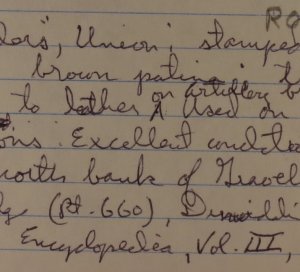 RO
dors", Union; stamped
brown patina; t
to leather ^ on artillery b
Used on
ons. Excellent conditio
north bank of Gravel
(Rt. 660), Dinwiddi
Encyclopedia, Vol. III,